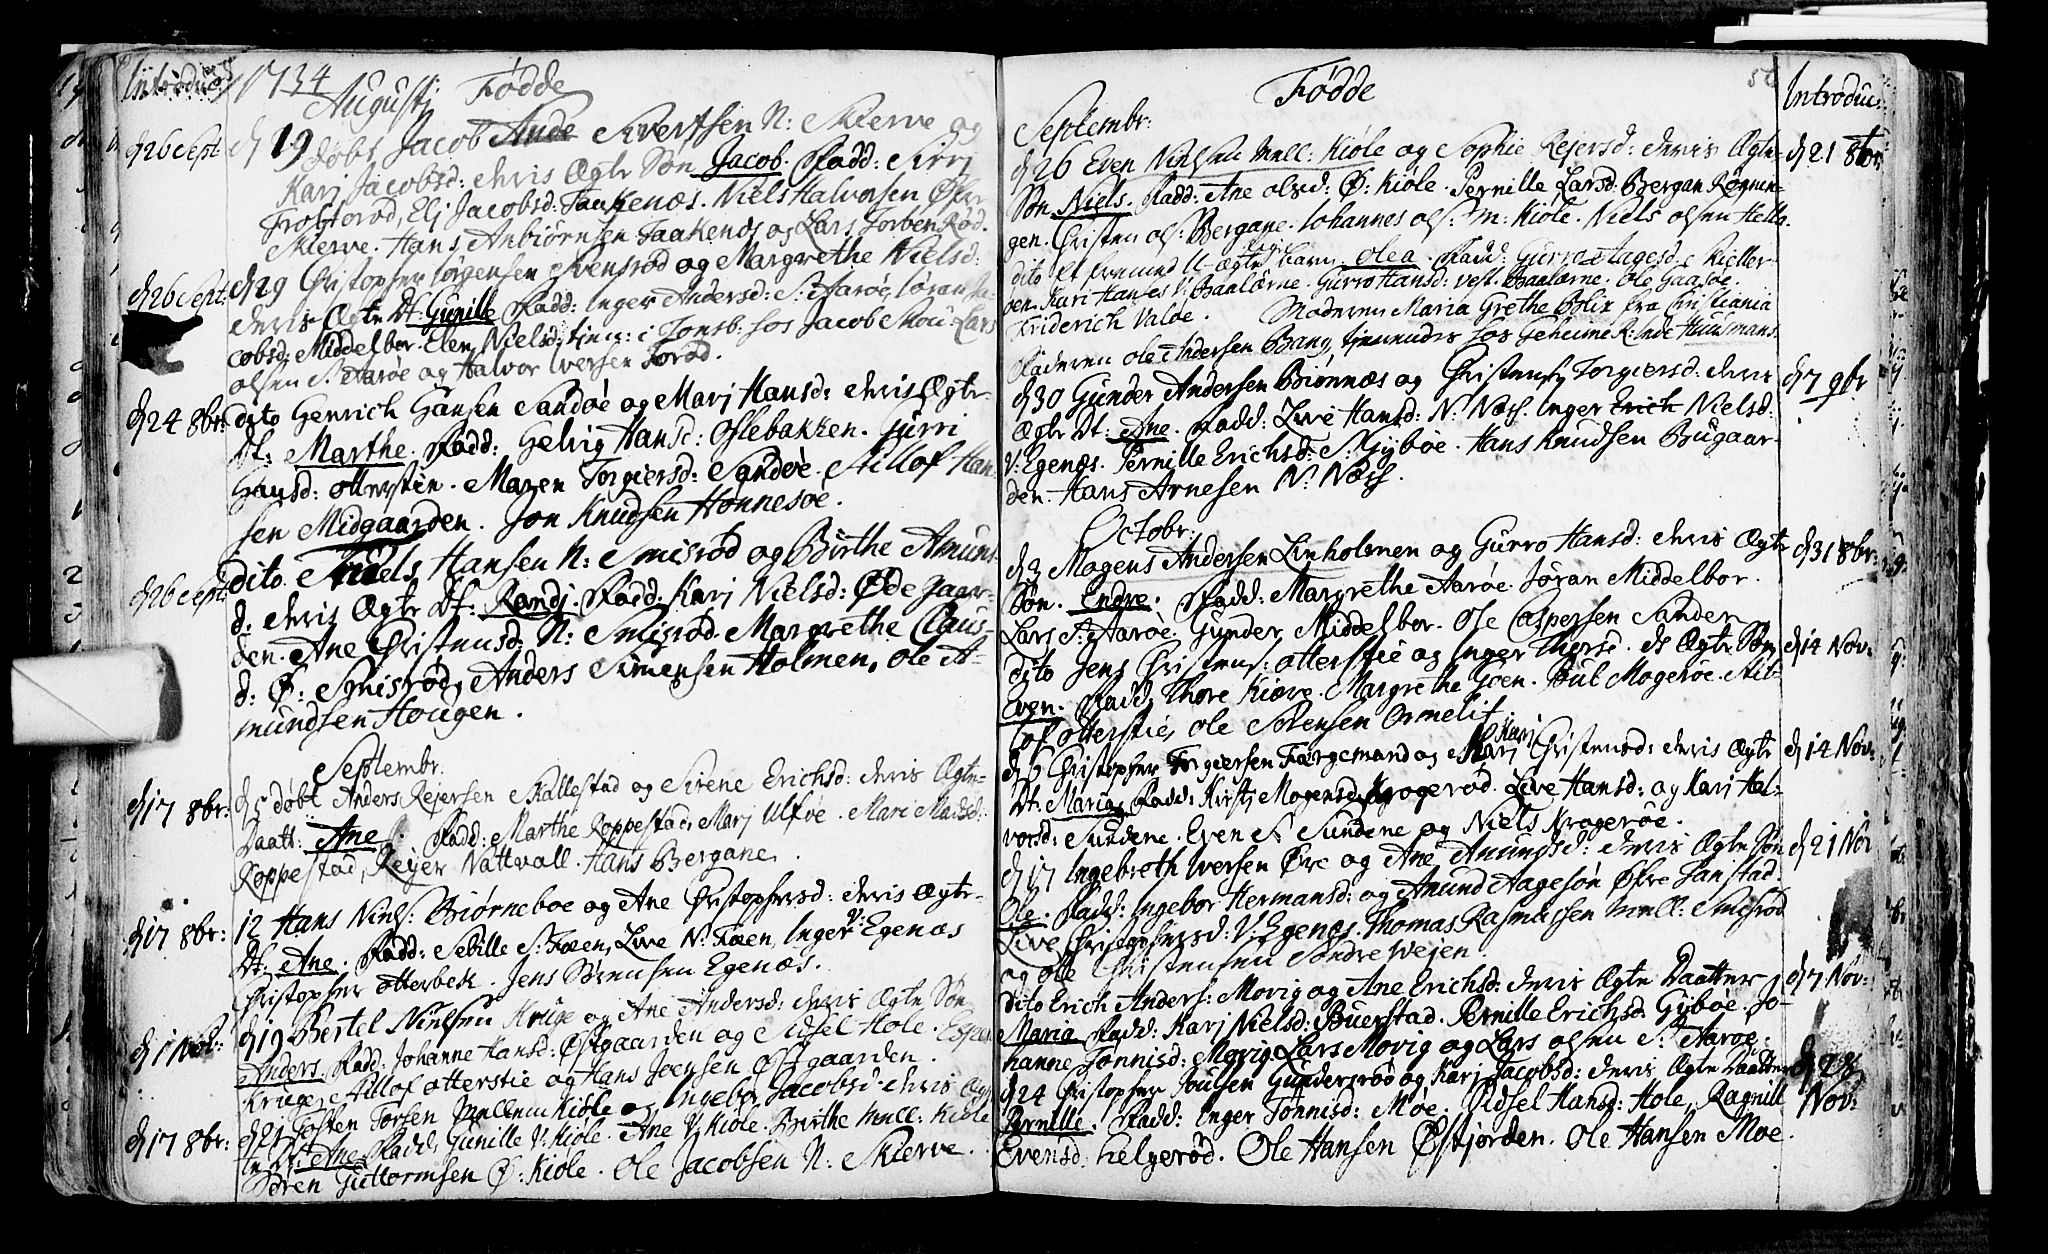 Introduc:
1734
Augustj Fødde
d 26 Sept: d 19 døbt Jacob Ande Sivertsen N: Skierve og
Karj Jacobsd: deris Ægte Søn Jacob. Fadd: Sirj
Trolsrød, Elj Jacobsd: Taakenæs. Niels Halvorsen Øfre
Skierve. Hans Anbiørnsen Taakenæs og Lars Torbenrød.
d 26 Sept: d 29 Christopher Jørgensen Svensrød og Margrethe Nielsd:
deris Ægte Dt: Gunille Fadd: Inger Andersd: S: Aarøe, Jøran Ja-
cobsd: Middelbor. Elen Nielsd: tien: i Tonsb: hos Jacob Mou. Lars
olsen S: Aarøe og Halvor Iversen Torød.
d 24 8br: dito Henrich Hansen Sandøe og Marj Hansd: deris Ægte
Dt: Marthe. Fadd: Helvig Hansd: Oslebakken. Gurri
Hansd: Otterstie. Maren Torgiersd: Sandøe. Stillof Han-
sen Midgaarden. Jon Knudsen Hønnesøe.
d 26 Sept: dito Niels Hansen N: Smisrød og Birthe Amunds
d. deris Ægte Dt: Randj. Fadd: Karj Nielsd: Øde gaar-
den. Ane Christensd: N: Smisrød. Margrethe Claus
d: Ø: Smisrød, Anders Simensen Holmen, Ole A-
mundsen Hougen.
Septembr.
d 17 8br: d 5 døbt Anders Rejersen Skallestad og Sirene Erichsd: deris Ægte
Daatt: Ane. Fadd: Marthe Roppestad, Marj Ulføe. Mari Madsd:
Roppestad, Rejer Nattvall. Hans Bergane.
d 17 8br: 12 Hans Niels: Biørneboe og Ane Christophersd: deris Ægte
Dt. Ane. Fadd: Sebille S: Fæen, Live N: Fæen, Inger V: Egenæs
Christopher Otterbek. Jens Sørensen Egenæs.
d 1 Nov: d 19 Bertel Nielsen Kruge og Ane Andersd: deris Ægte Søn
Anders. Fadd: Johanne Hansd: Østgaarden og Sidsel Hole. Esper
Kruge, Stillof Otterstie og Hans Joensen Østgaarden.
d 17 8br: d 21 Tosten Torsen Mellem Kiøle og Ingebor Jacobsd: deris Æg-
te Dt: Ane Fadd, Gunille V: Kiøle. Ane V: Kiøle. Birthe Mell: Kiøle
Søren Guttormsen Ø: Kiøle. Ole Jacobsen N: Skierve.
Fødde
Introduc:
Septembr:
d 26 Even Nielsen Mell: Kiøle og Sophie Rejersd: deris Ægte d 21 8br:
Søn Niels. Fadd: Ane Olsd: Ø: Kiøle. Pernille Larsd: Bergan Rønnin-
gen. Christen Ols: Bergane. Johannes Ols: m: Kiøle. Niels Olsen Hella.
dito Et fremmed U-Ægte barn Olea. Fadd: Gurro Aagesd: Kieller-
gen. Kari Hanses V: Baalærne. Gurro Hansd: vest Baalærne. Ole Gaasøe.
Friderich Valøe. Moderen Maria Grethe Blix fra Christiania
Faderen Ole Andersen Bang, tienendes hos Geheime R: inde Huusmans
d 30 Gunder Andersen Biønnæs og Christense Torgiersd: deris d 7 9br
Ægte Dt: Ane. Fadd: Live Hansd: N: Næss. Inger Erich Nielsd:
V: Egenæs. Pernille Erichsd: S: Gybøe. Hans Knudsen Bugaar-
den. Hans Arnesen N: Næss.
Octobr:
d 3 Mogens Andersen Linholmen og Gurro Hansd: deris Ægte d 31 8br:
Søn. Endre. Fadd: Margrethe Aarøe. Jøran Middelbor.
Lars S: Aarøe. Gunder Middelbor. Ole Caspersen Sanden
dito Jens Christens: Otterstie og Inger Thorsd. ds Ægte Søn d 14 Nov:
Even. Fadd, Thore Kiøve. Margrethe Goen. Poul Mogerøe. Stil-
lof Otterstie, Ole Sørensen Ormelit.
d 6 Christopher Torgiersen Færgemand og Marj Karj Christensd: deris Ægte d 14 Nov:
Dt. Maria. Fadd: Kirstj Mogensd: Krogerød. Live Hansd: og Karj Hal-
vorsd: Sundene. Even S: Sundene og Niels Krogerøe.
d 17 Ingebreth Iversen Øre og Ane Amundsd: deris Ægte Søn d 21 Nov
Ole. Fadd: Ingebor Hermansd: og Amund Aagesøn Øfre Fanstad.
Live Christophersd: V: Egenæs. Thomas Rasmussen Mell: Smisrød
og Olle Christensen Søndre Wejen.
dito Erich Anders: Movig og Ane Erichsd: deris Ægte Daatter d 7 Nov:
Maria Fadd: Karj Nielsd: Buerstad. Pernille Erichsd Gybøe. Jo-
hanne Tønnisd: Movig. Lars Movig og Lars Olsen S: Aarøe.
d 24 Christopher Poulsen Gundersrød og Karj Jacobsd: deris Ægte Daatter d 28
Pernille. Fadd: Inger Tønnisd: Moe. Sidsel Hansd: Hole. Ragnill Nov:
Evensd: Helgerød. Ole Hansen Østjorden. Ole Hansen Moe.